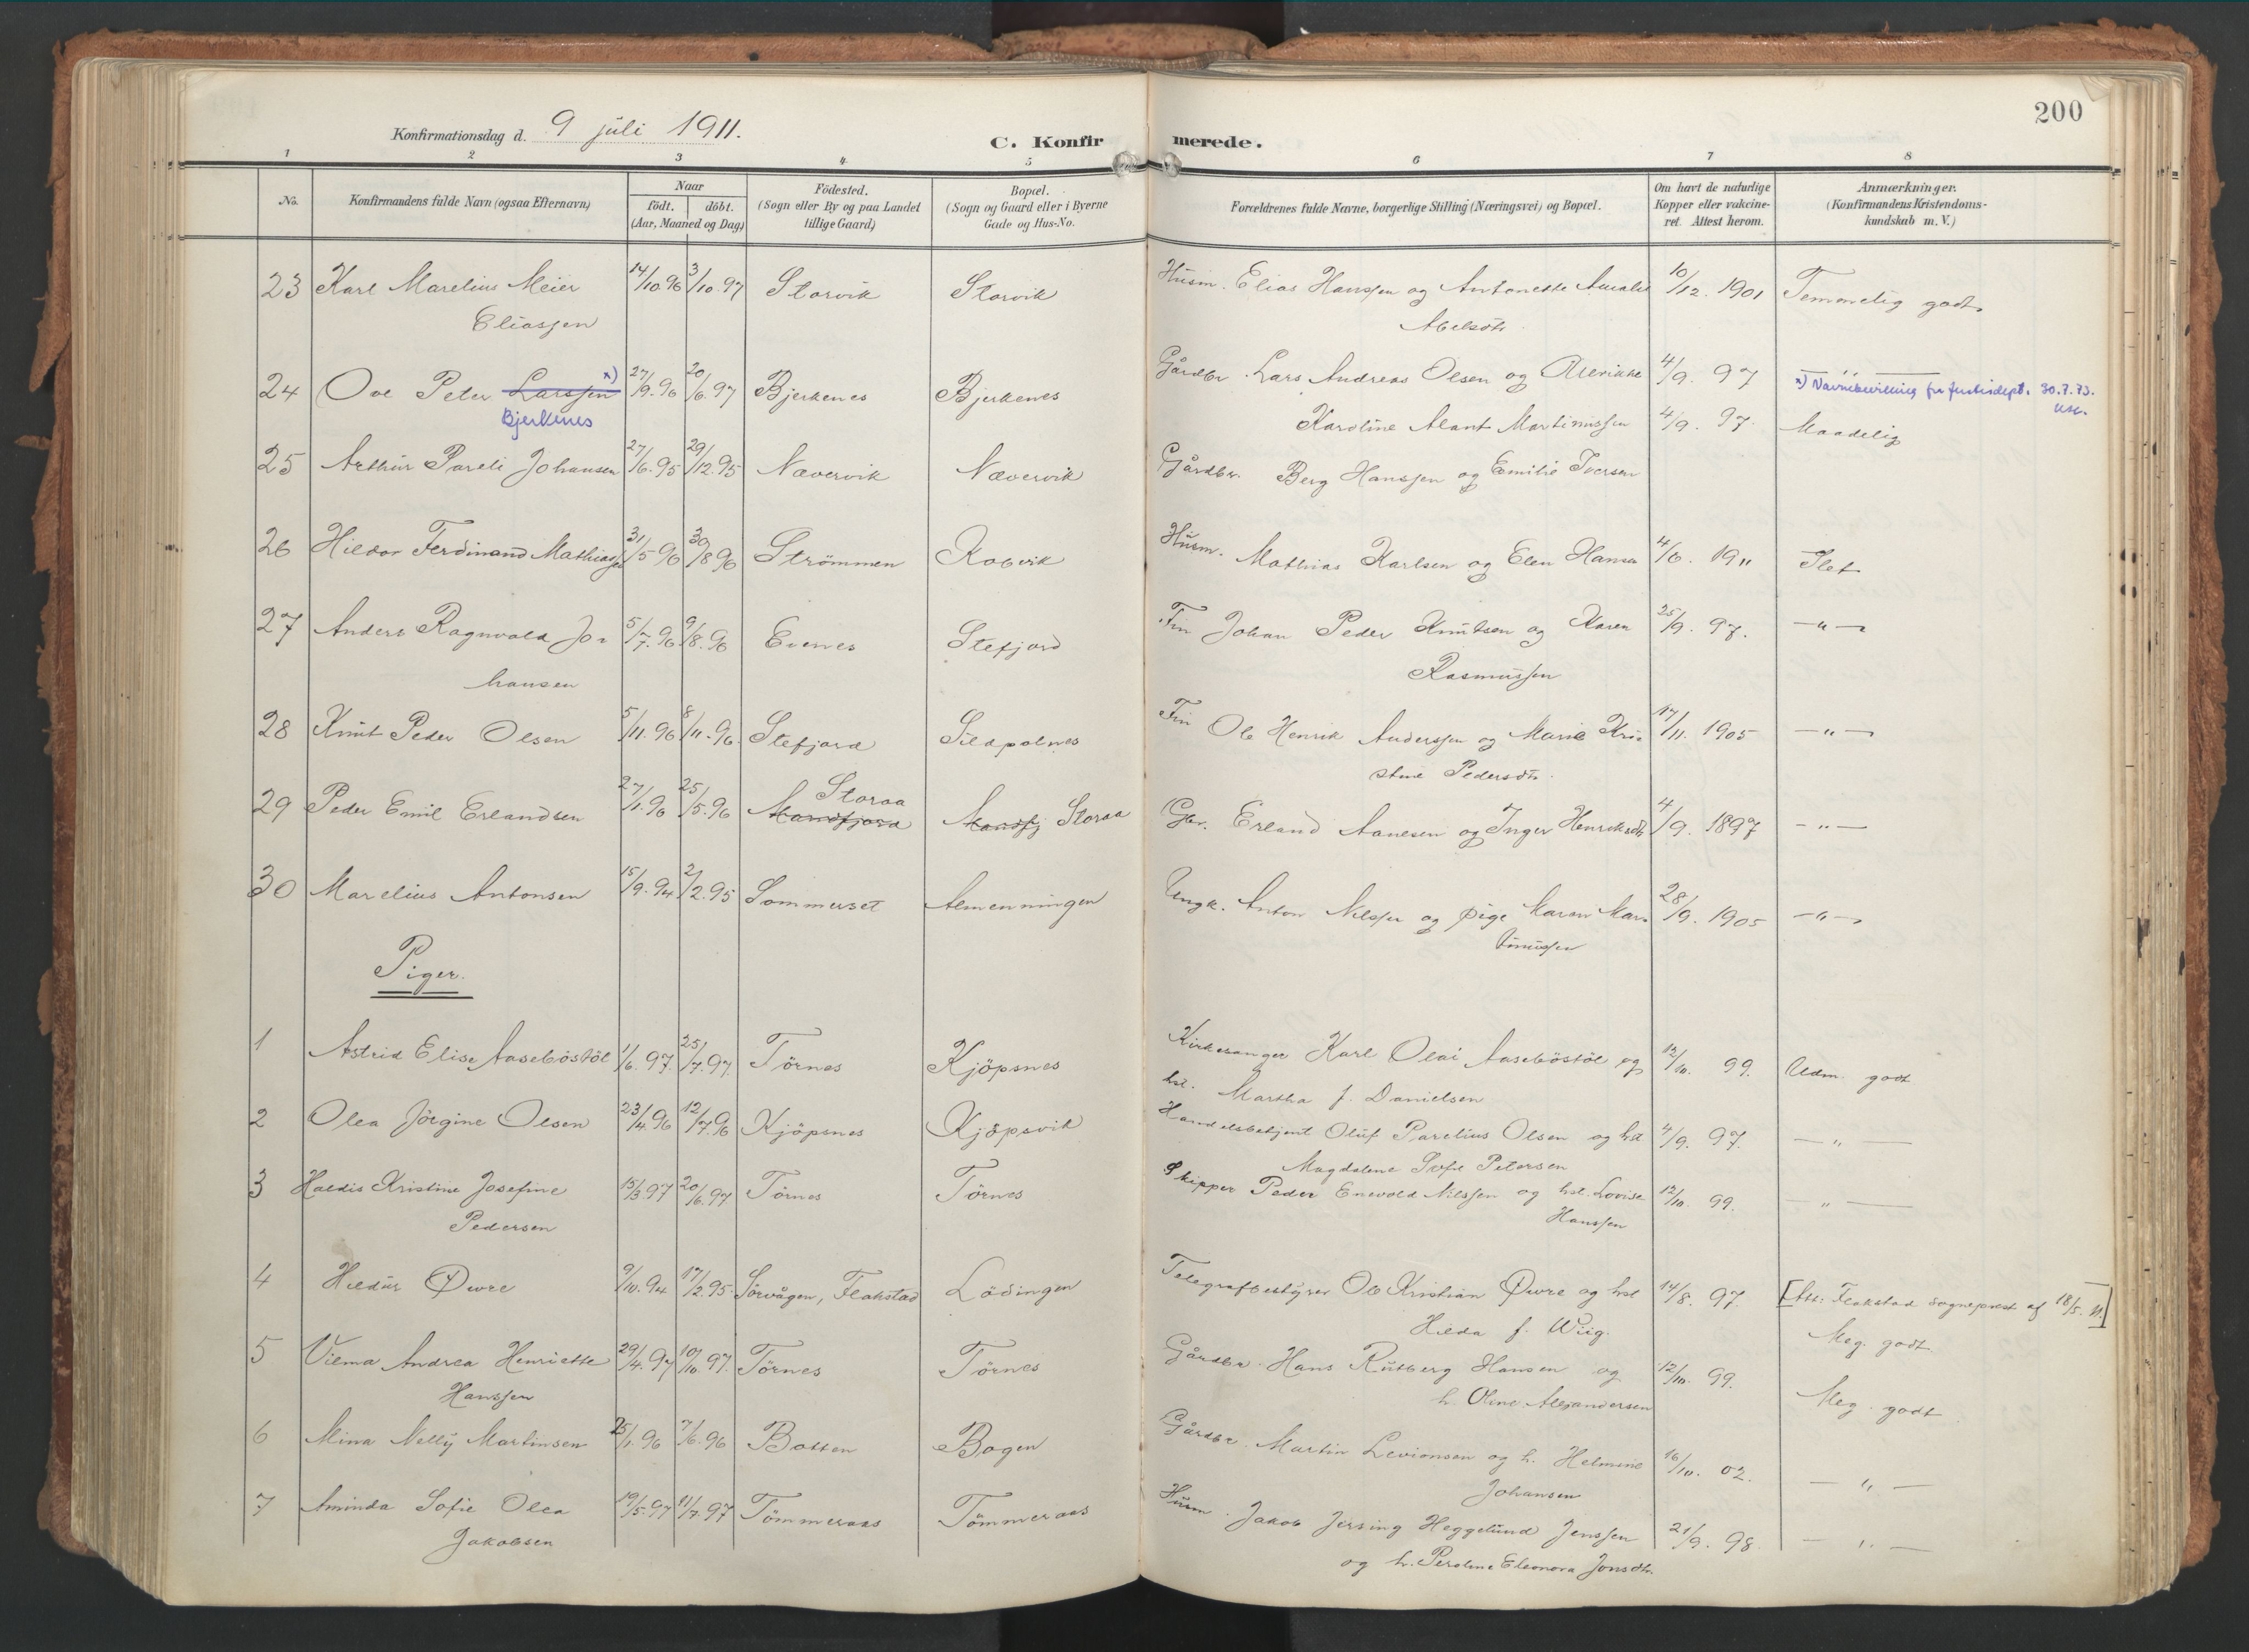 200
Konfirmationsdag d. 9 juli 1911.
C. Konfirmerede.
1 2 3 4 5 6 7 8
No.
Konfirmandens fulde Navn (ogsaa Efternavn)
Naar
födt. döbt.
(Aar, Maaned og Dag)
Födested.
(Sogn eller By og paa Landet
tillige Gaard)
Bopæl.
(Sogn og Gaard eller i Byerne
Gade og Hus-No.
Forældrenes fulde Navne, borgerlige Stilling (Næringsvei) og Bopæl.
Om havt de naturlige
Kopper eller vakcine-
ret. Attest herom.
Anmærkninger.
(Konfirmandens Kristendoms-
kundskab m. V.)
23 Karl Marelius Meier 14/10.96 3/10.97 Storvik Storvik Husm. Elias Hanssen og Antonette Amalie 10/12. 1901 Temmelig godt
Eliassen Abelsdtr.
24 Ove Peter Larssen x) 27/9.96 20/6.97 Bjerkenes Bjerkenes Gårdbr. Lars Andreas Olsen og 4/9. 97 — " —
Bjerkenes x) Navnebevilling fra justisdept. 30.7.73.
Karoline Martinussen 4/9. 97. Maadelig
25 Arthur Pareli Johansen 27/6.95 29/12.95 Nævervik Nævervik Gårdbr. Berg Hanssen og Emilie Iversen
26 Hildor Ferdinand Mathiassen 31/5 96 30/8 96 Strömmen Kobvik Husm. Mathias Karlsen og Elen Hansen 4/6. 1911 Slet
27 Anders Ragnvald Jo- 5/7.96 9/8.96 Evenes Stefjord Fin Johan Peder Knutsen og Karen 25/9. 97. — " —
hansen Rasmussen
28 Knut Peder Olsen 5/11.96 8/11.96. Stefjord Sildpolnes Fin Ole Henrik Anderssen og Marie Kri- 17/11. 1905 — " —
stine Pedersdtr.
29 Peder Emil Erlandsen 27/1.96 25/5.96 Manofjord Storaa Storaa Gbr. Erland Aanesen og Inger Henriksdtr 4/9. 1897 — " —
30 Marelius Antonsen 15/9.94 2/2.95 Sommerset Almenningen Ungk. Anton Nilssen og pige Maren Mar- 28/9. 1905 — " —
tinussen
Piger.
1 Astrid Elise Aaseböstöl 1/6.97. 25/7.97. Törnes Kjöpsnes Kirkesanger Karl Olai Aaseböstöl og 12/10. 99. Udm. godt
hst. Martha f. Danielsen
2 Olea Jörgine Olsen 23/4.96 12/7.96 Kjöpsnes Kjöpsvik Handelsbetjent Oluf Parelius Olsen og hst 4/9. 97. — " —
Magdalene Sofie Petersen
3 Haldis Kristine Josefine 15/3 97 20/6.97 Törnes Törnes Skipper Peder Enevold Nilssen og hst. Lovise 12/10. 99. — " —
Pedersen Hanssen
4 Hildur Øwre 9/10.94 17/2.95. Sörvågen, Flakstad Lödingen Telegrafbestyrer Ole Kristian Øwre og hst 14/8. 97. [Att: Flakstad sogneprest af 18/5. 11.]
Hilda f. Wiig. Meg. godt.
5 Vilma Andrea Henriette 29/4.97 10/10.97. Törnes Törnes Gårdbr. Hans Rutberg Hansen og 12/10. 99. Meg. godt
Hanssen h. Oline Alexandersen
6 Mina Nelly Martinsen 25/1.96 7/6.96 Botten Bogen Gårdbr. Martin Levionsen og h. Helmine 16/10. 02. — " —
Johansen
7 Aminda Sofie Olea 19/5.97 11/7.97 Tömmeraas Tömmeraas Husm. Jakob Jersing Heggelund Jenssen 21/9. 98. — " —
Jakobsen og h. Peroline Eleonora Jonsdtr.